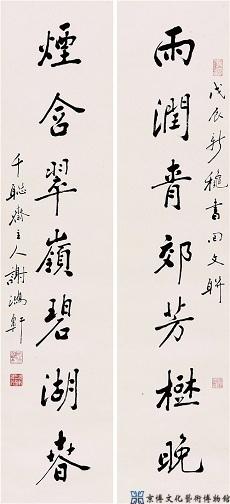 戊辰新穐書回文聯
雨潤青郊芳樾晚
煙含翠嶺碧湖春
千聯齋主人謝鴻軒
京博文化藝術博物館